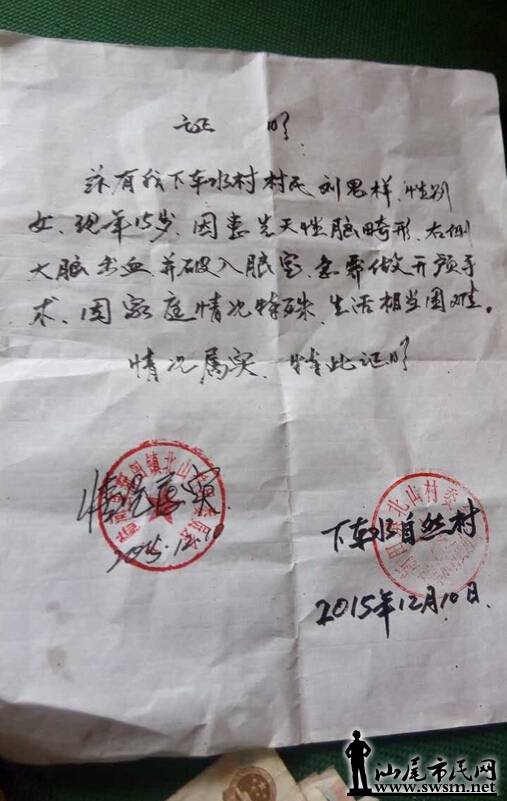 证 明
兹有我下车水村村民刘思样,性别
女、现年15岁、因患先天性脑畸形、右侧
大脑出血并破入脑室、急需做开颅手
术、因家庭情况特殊、生活相当困难。
情况属实、特此证明
镇北山
情况属实
2015.12.10
北山村委
下车水自然村
2015年12月10日.
汕尾市民网
www.swsm.net